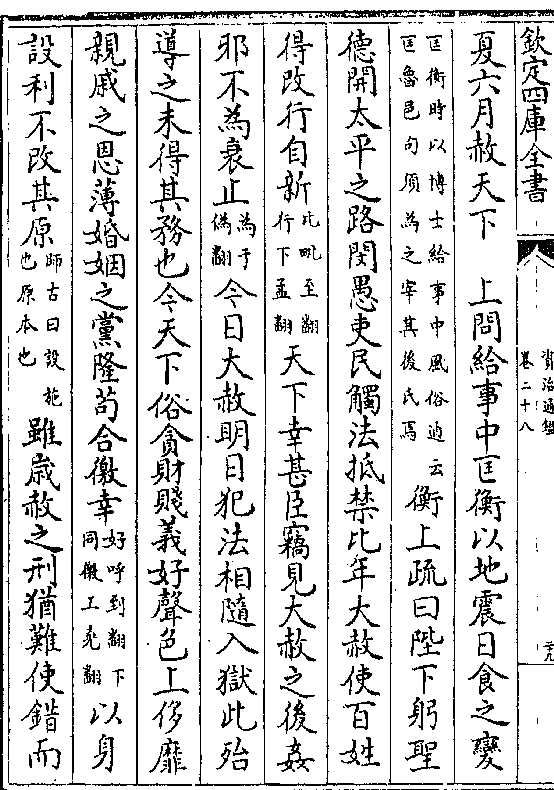 欽定四庫全書
資治通鑑
卷二十八
夏六月赦天下　上問給事中匡衡以地震日食之變
匡衡時以博士給事中風俗通云
匡魯邑句須為之宰其後氏焉
衡上疏曰陛下躬聖
德開太平之路閔愚吏民觸法抵禁比年大赦使百姓
得改行自新
比毗至翻
行下孟翻
天下幸甚臣竊見大赦之後姦
邪不為衰止
為于
偽翻
今日大赦明日犯法相隨入獄此殆
導之未得其務也今天下俗貪財賤義好聲色上侈靡
親戚之恩薄婚姻之黨隆茍合徼幸
好呼到翻下
同徼工堯翻
以身
設利不改其原
師古曰設施
也原本也
雖歲赦之刑猶難使錯而